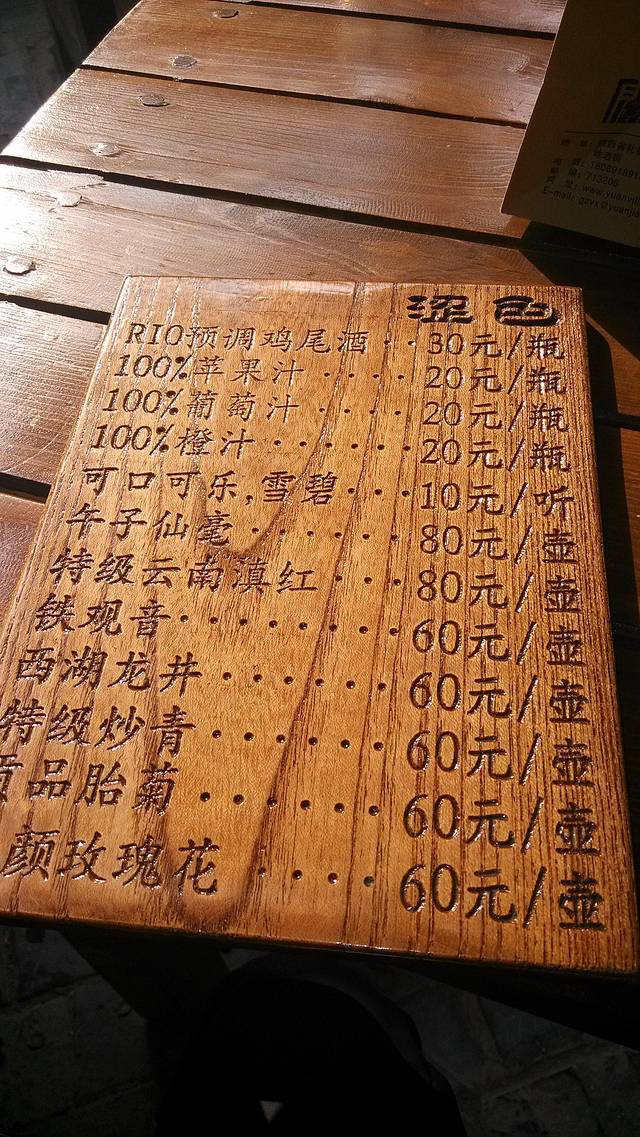 涩色
RIO预调鸡尾酒··30元/瓶
100%苹果汁····20元/瓶
100%葡萄汁····20元/瓶
100%橙汁······20元/瓶
可口可乐,雪碧···10元/听
午子仙毫·····80元/壶
特级云南滇红···80元/壶
铁观音······60元/壶
西湖龙井······60元/壶
特级炒青······60元/壶
贡品胎菊······60元/壶
颜玫瑰花····60元/壶
713206
E-mail: